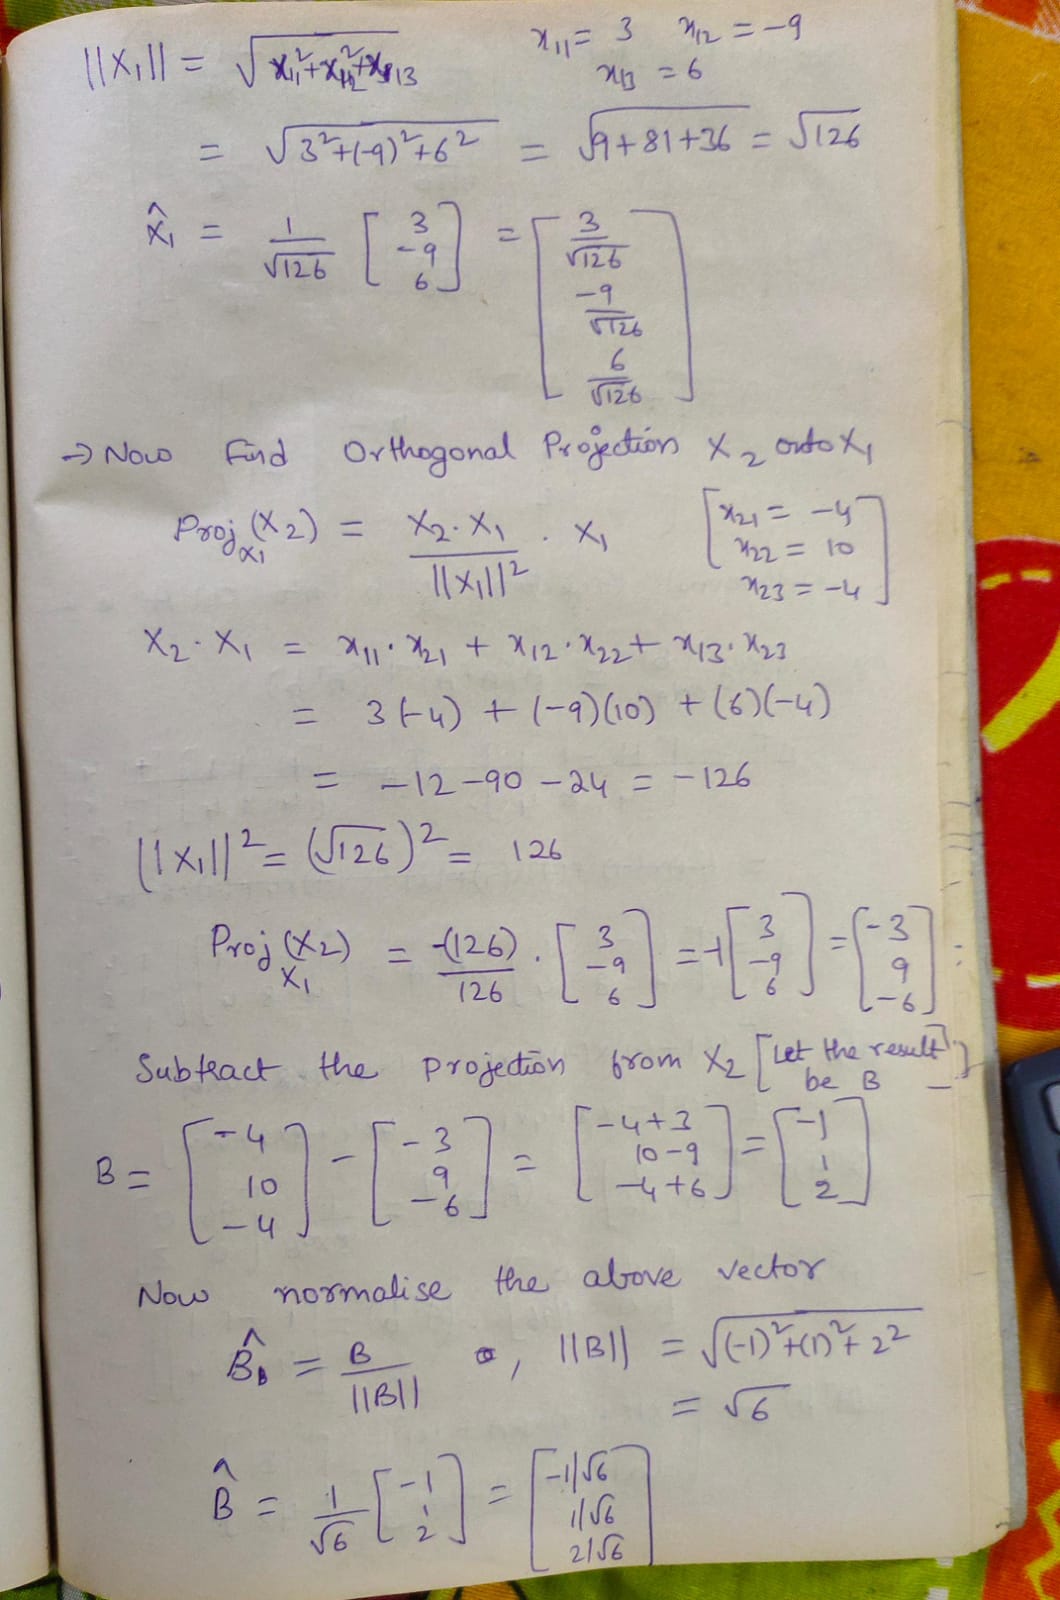 ||X₁|| = √x₁₁²+x₁₂²+x₁₃ x₁₁ = 3 x₁₂ = -9
x₁₃ = 6
= √3²+(-9)²+6² = √9+81+36 = √126
X̂₁ = 1/√126 [3 -9 6] = [3/√126 -9/√126 6/√126]
→ Now find Orthogonal Projection X₂ onto X₁
Proj_X₁(X₂) = X₂·X₁ / ||X₁||² . X₁ [x₂₁ = -4 x₂₂ = 10 x₂₃ = -4]
X₂·X₁ = x₁₁·x₂₁ + x₁₂·x₂₂ + x₁₃·x₂₃
= 3(-4) + (-9)(10) + (6)(-4)
= -12 -90 -24 = -126
||X₁||² = (√126)² = 126
Proj_X₁(X₂) = -(126)/126 . [3 -9 6] = -1[3 -9 6] = [-3 9 -6]
Subtract the projection from X₂ [Let the result be B]
B = [-4 10 -4] - [-3 9 -6] = [-4+3 10-9 -4+6] = [-1 1 2]
Now normalise the above vector
B̂ = B/||B|| , ||B|| = √(-1)²+(1)²+2²
= √6
B̂ = 1/√6 [-1 1 2] = [-1/√6 1/√6 2/√6]